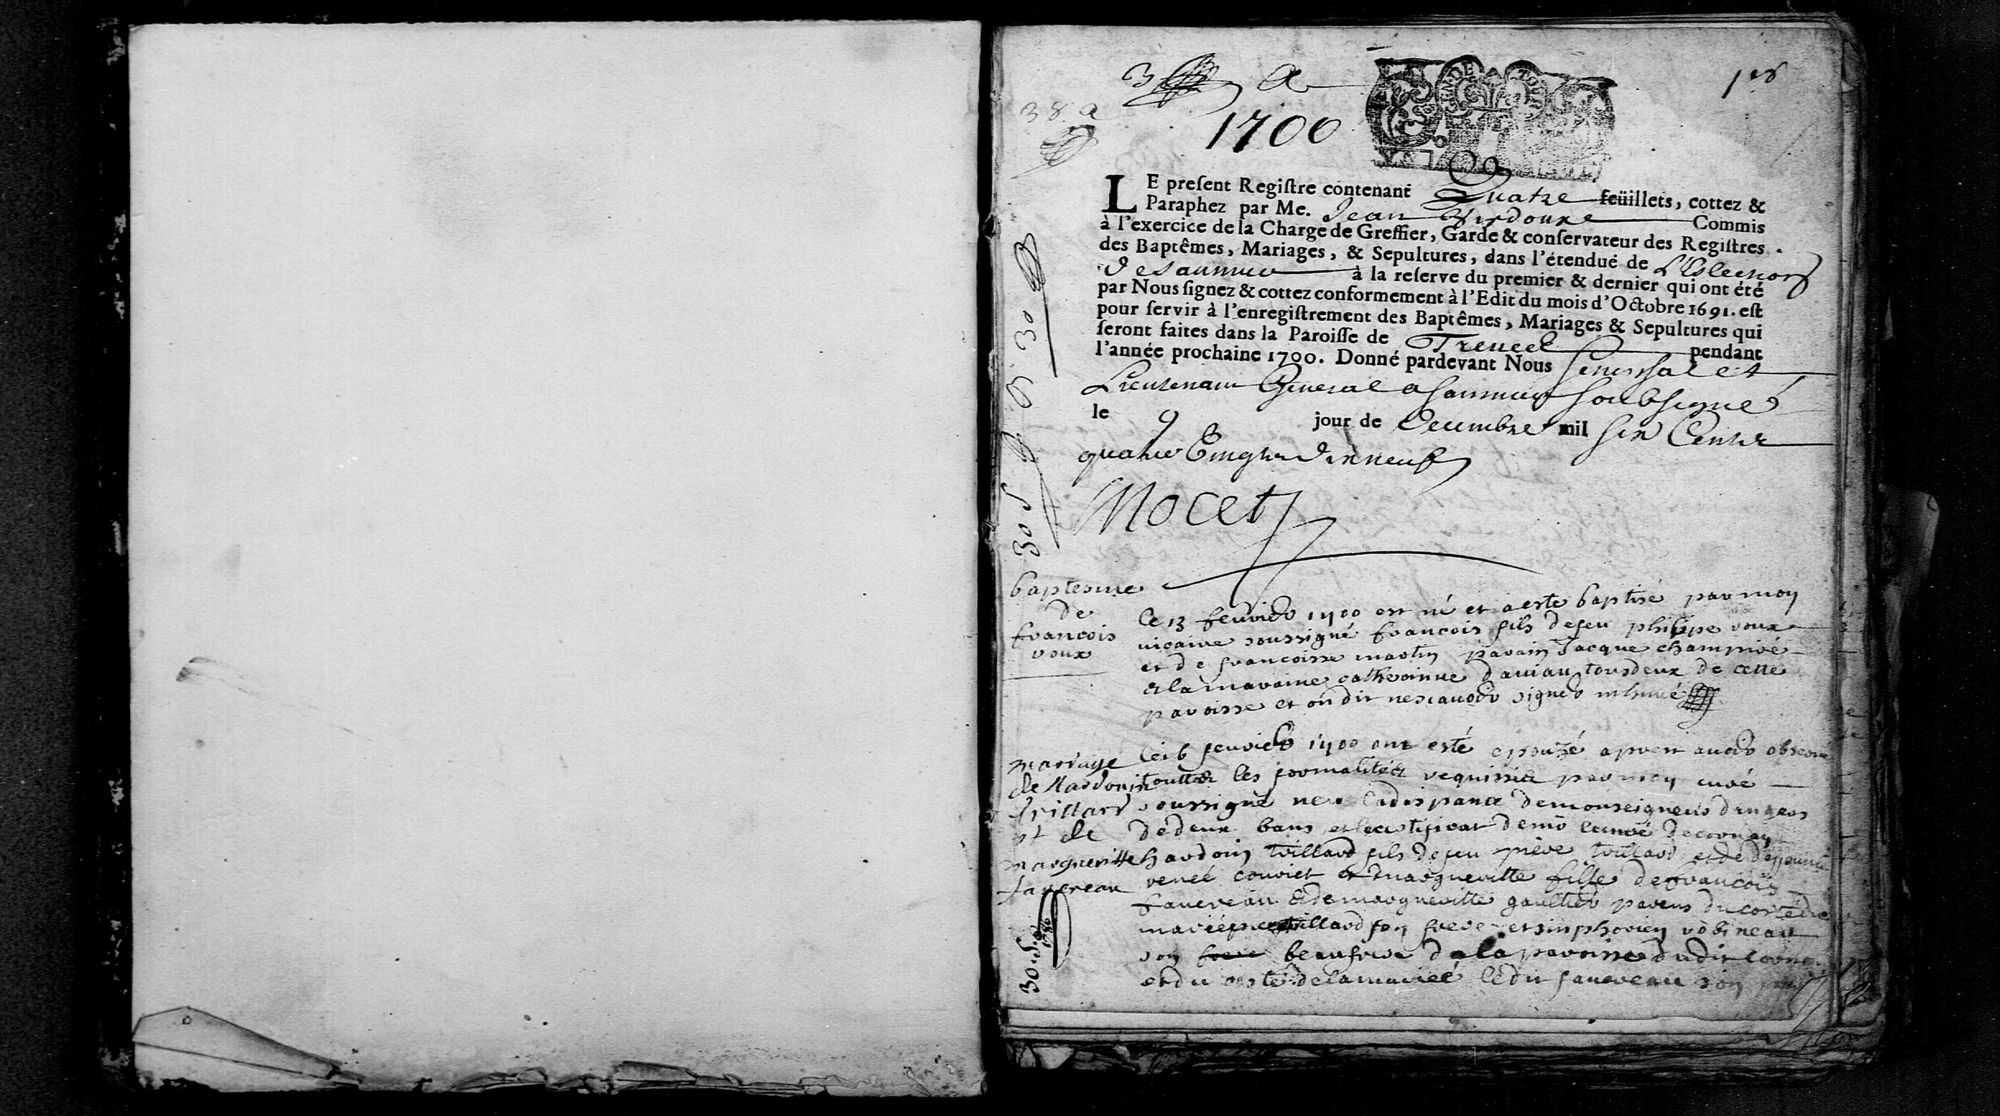 38 a
1700
1er
GEN. DE TOURS
LE preſent Regiſtre contenant Quatre feüillets, cottez &
Paraphez par Me. Jean Commis
à l'exercice de la Charge de Greffier, Garde & conſervateur des Regiſtres
des Baptêmes, Mariages, & Sepultures, dans l'étenduë de L'Eslection
de Saumur à la reſerve du premier & dernier qui ont été
par Nous ſignez & cottez conformement à l'Edit du mois d'Octobre 1691. est
pour ſervir à l'enregiſtrement des Baptêmes, Mariages & Sepultures qui
ſeront faites dans la Paroiſſe de Treves pendant
l'année prochaine 1700. Donné pardevant Nous Seneschal et
Lieutenant General a Saumur soubsigné
le 9 jour de Decembre mil six Cents
quatre Vingts dix neuf
Mocet
baptesme
de
francois
voux
Ce 13 fevrier 1700 est né et a esté baptisé par moy
vicaire soussigné francois fils de feu philippe voux
et de francoisse martin parain Jacque champivé
& la maraine catherinne daviau tous deux de cette
paroisse et on dit ne scauoir signer
mariage
de Hardouin
trillard
et de
margueritte
favereau
Ce 16 fevrier 1700 ont esté epouzé apres auoir obserué
toutte les formalitéz requisses par moy curé
soussigné veu la dispance de monseigneur dangers
de deux bans et le certificat de mr le curé de
hardoin trillard fils de feu piere trillard et de deffuncte
renée couriet et margueritte fille de francois
favereau & de margueritte gaultier parens du costé du
marié trillard son frere et simphorien robineau
son beaufrere de la paroisse dudit
et du costé de la mariée le dit favereau son